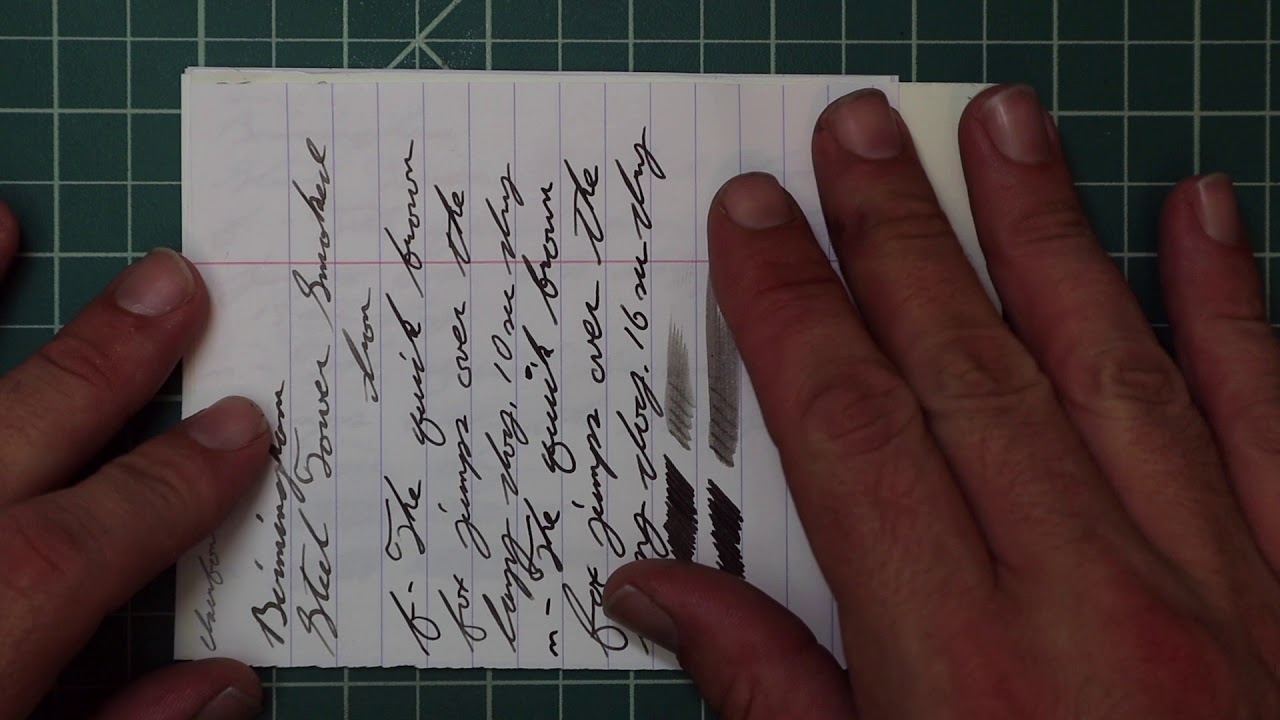 Birmingham
Steel Tower Smoked
Iron
f- The quick brown
fox jumps over the
lazy dog. 10 sec dry
m- The quick brown
fox jumps over the
dog. 16 sec dry